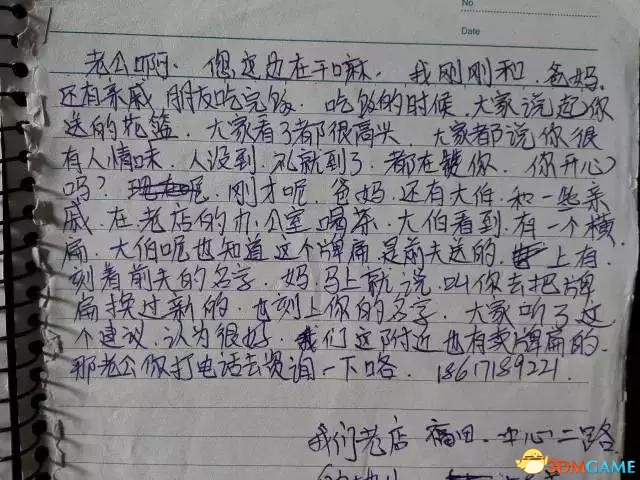 No
Date
老公啊. 您这边在干嘛. 我刚刚和. 爸妈.
还有亲戚 朋友吃完饭. 吃饭的时候. 大家说起你
送的花篮. 大家看了都很高兴. 大家都说你很
有人情味. 人没到. 礼就到了. 都在 你. 你开心
吗? 刚才呢. 爸妈. 还有大伯. 和一些亲
戚 在 老店的办公室喝茶. 大伯看到有一个横
扁. 大伯呢也知道这个牌扁 是前夫送的. 上有
刻着前夫的名字. 妈. 马上就说. 叫你去把牌
扁换过新的. 也刻上你的名字. 大家听了这
个建议. 认为很好. 我们这附近也有卖牌扁的.
那老公你打电话去资询一下咯. 18617189221.
我们老店 福田. 中心二路
3DMGAME